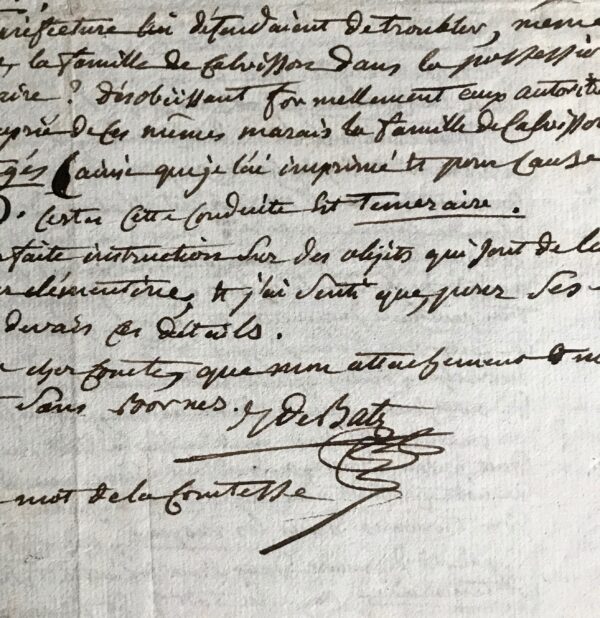 préfecture lui défendaient de troubler, même
la famille de Calvisson dans la possessio
aire ? désobéissant formellement aux autorité
prié de ces mêmes marais la famille de Calvisson
gés (ainsi que je l'ai imprimé et pour cause
D. certes cette conduite est temeraire.
faite instruction sur des objets qui sont de la
clémentine, et j'ai senti que, pour ses
devais ces détails.
cher Comte, que mon attachement
sans Bornes. de Batz
mot de la Comtesse